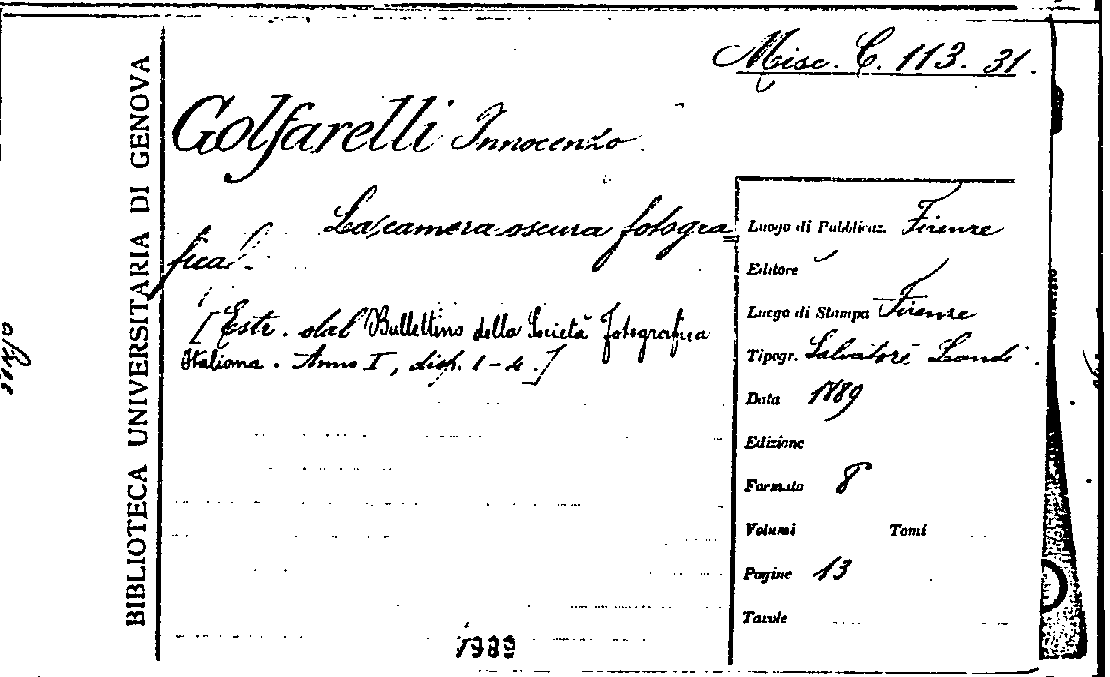 Misc. C. 113. 31.
BIBLIOTECA UNIVERSITARIA DI GENOVA
Golfarelli Innocenzo
La camera oscura fotogra=
fica.
[Estr. dal Bullettino della Società fotografica
Italiana. Anno I, disp. 1-4.]
1989
Luogo di Pubblicaz. Firenze
Editore
Luogo di Stampa Firenze
Tipogr. Salvatore Landi.
Data 1889
Edizione
Formato 8
Volumi Tomi
Pagine 13
Tavole